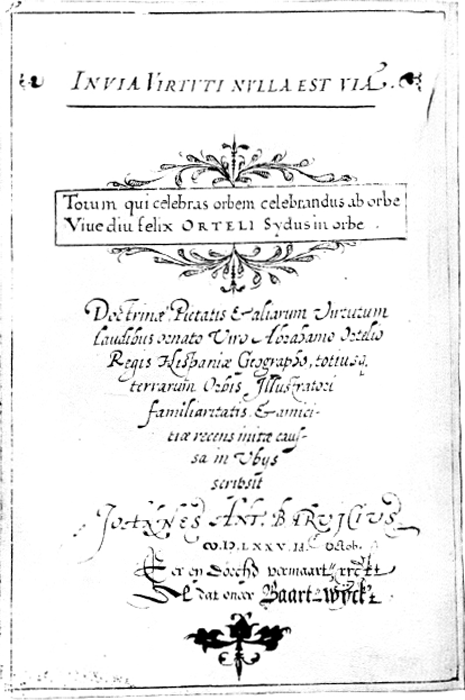 INVIA VIRTVTI NVLLA EST VIA.
Totum qui celebras orbem celebrandus ab orbe
Viue diu felix ORTELI Sydus in orbe.
Doctrinæ, Pietatis & aliarum Virtutum
laudibus ornato Viro Abrahamo Ortelio
Regis Hispaniæ Geographo, totiusq,
terrarum Orbis Illustratori
familiaritatis & amici-
tiæ recens initæ caus-
sa in Vbijs
scribsit
IOANNES ANT. BARVICIVS
LXXV. Octob.
Eer en
El dat oneer Baart Wÿck't.